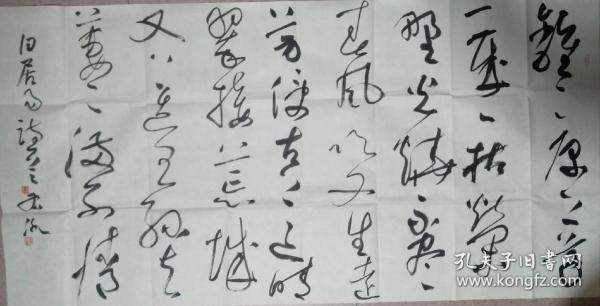 離々原上草
一歲一枯榮
野火燒不盡
春風吹又生遠
芳侵古道晴
翠接荒城
又送王孫去
萋々滿別情
白居易詩
孔夫子旧书网
www.kongfz.com